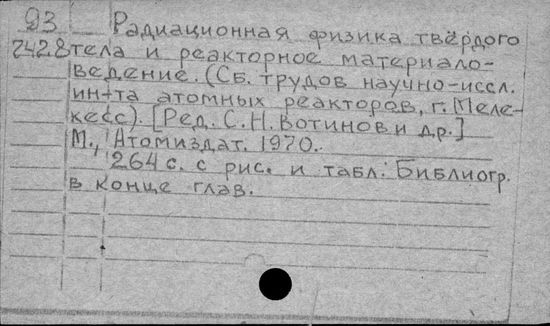 93 Радиационная физика твёрдого
2428 тела и реакторное материало-
ведение. (Сб. трудов научно-иссл.
ин-та атомных реакторов, г. Меле-
кесс). [Ред. С.Н. Вотинов и др.]
М., Атомиздат. 1970.
264 с. с рис. и табл. Библиогр.
в конце глав.